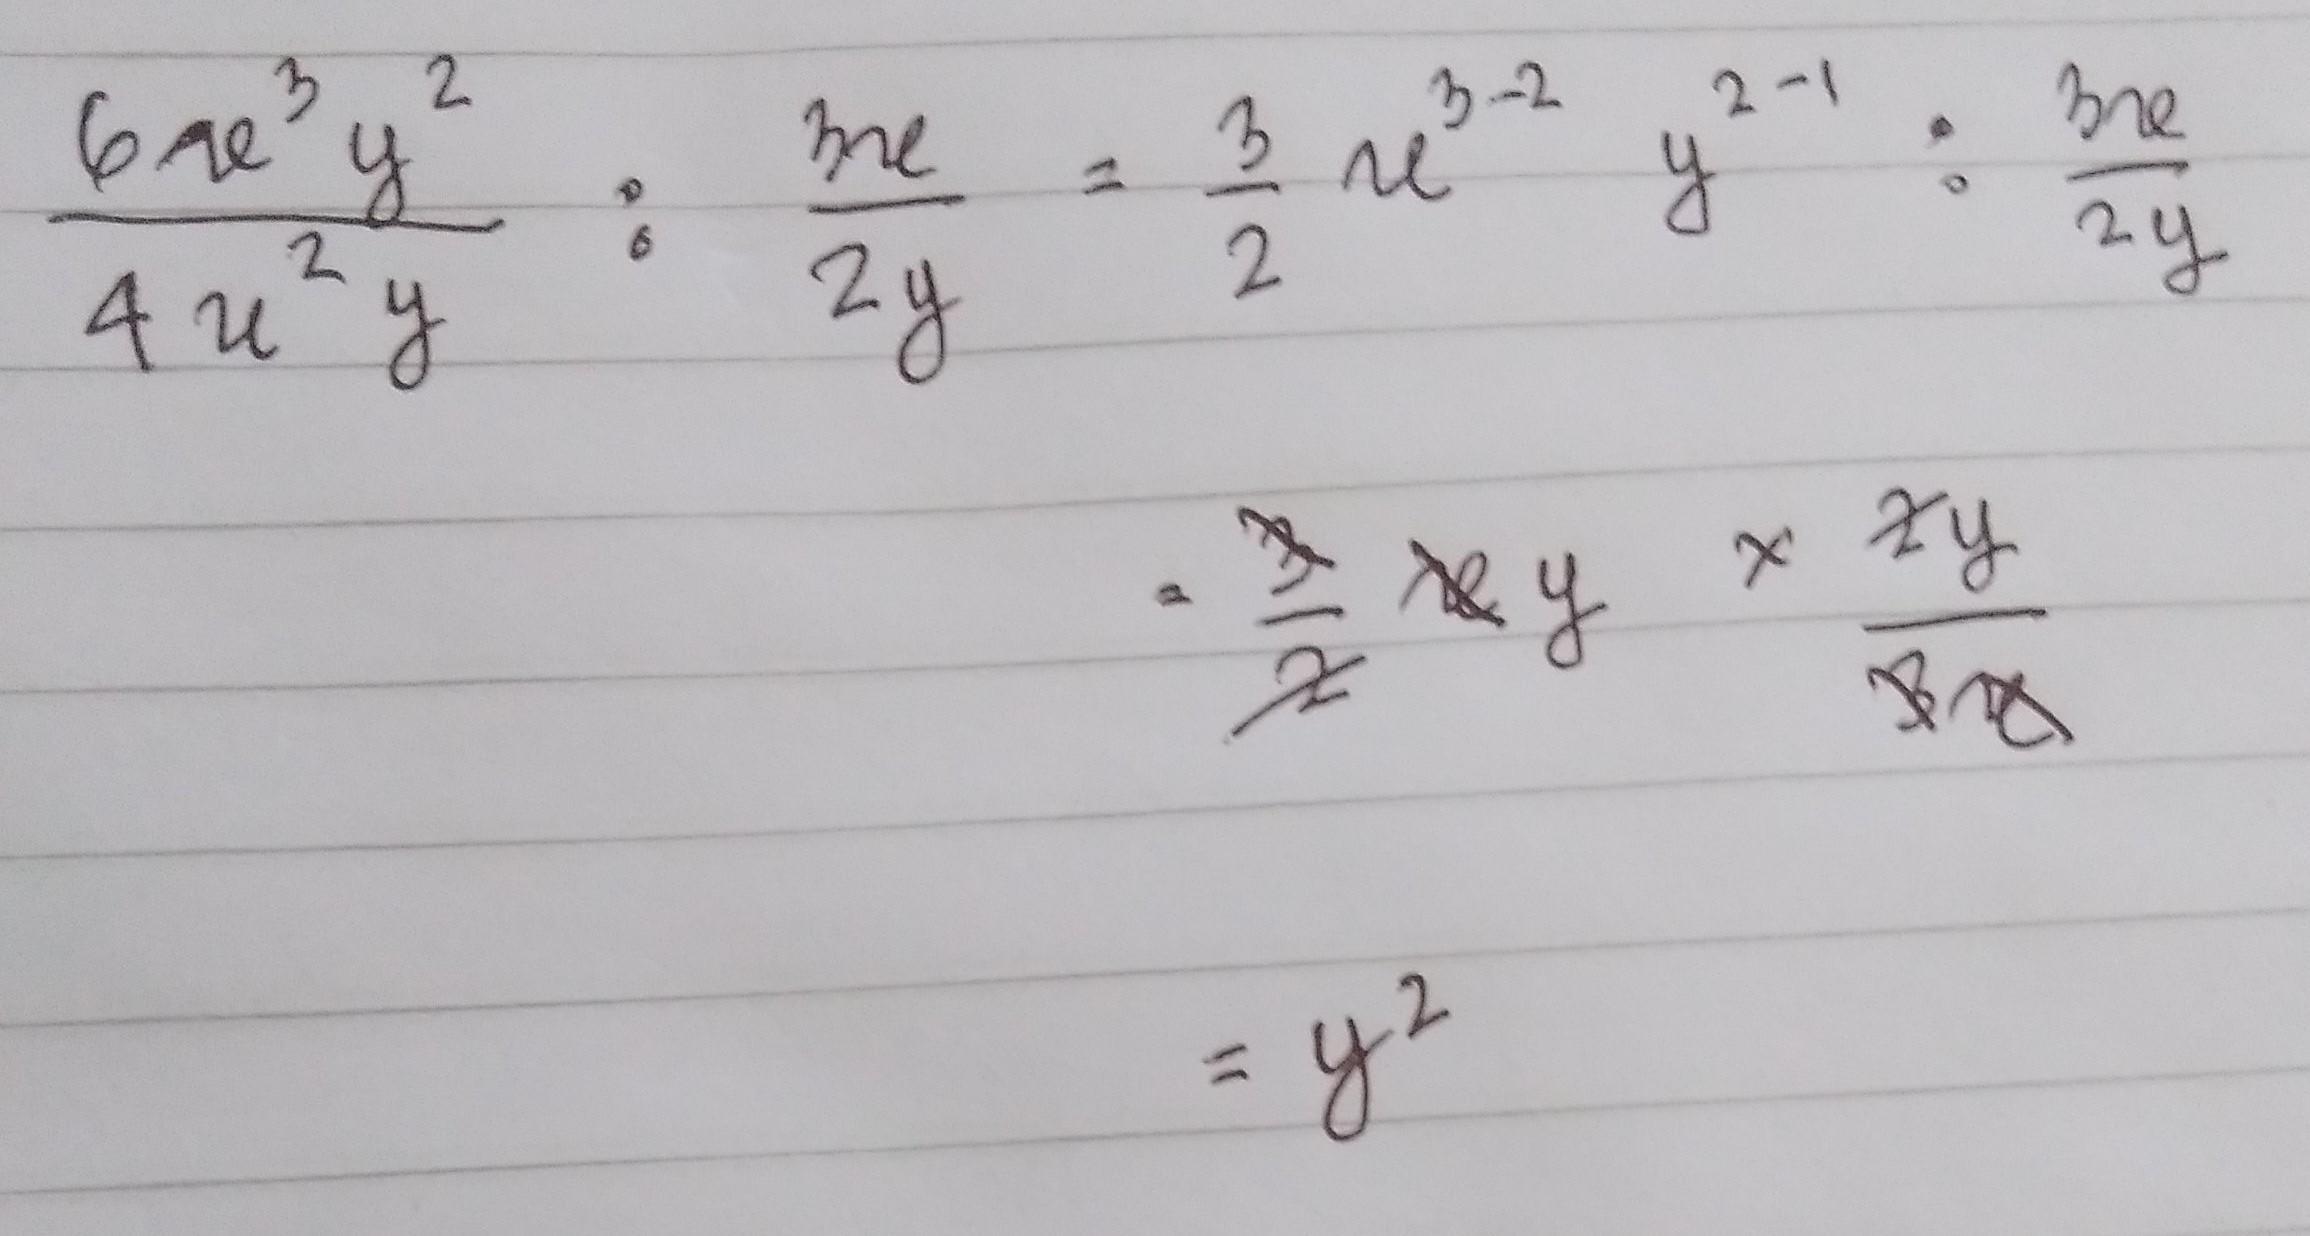 6x³y² / 4x²y : 3x / 2y = 3/2 x³⁻² y²⁻¹ : 3x / 2y
= 3/2 x y × 2y / 3x
= y²